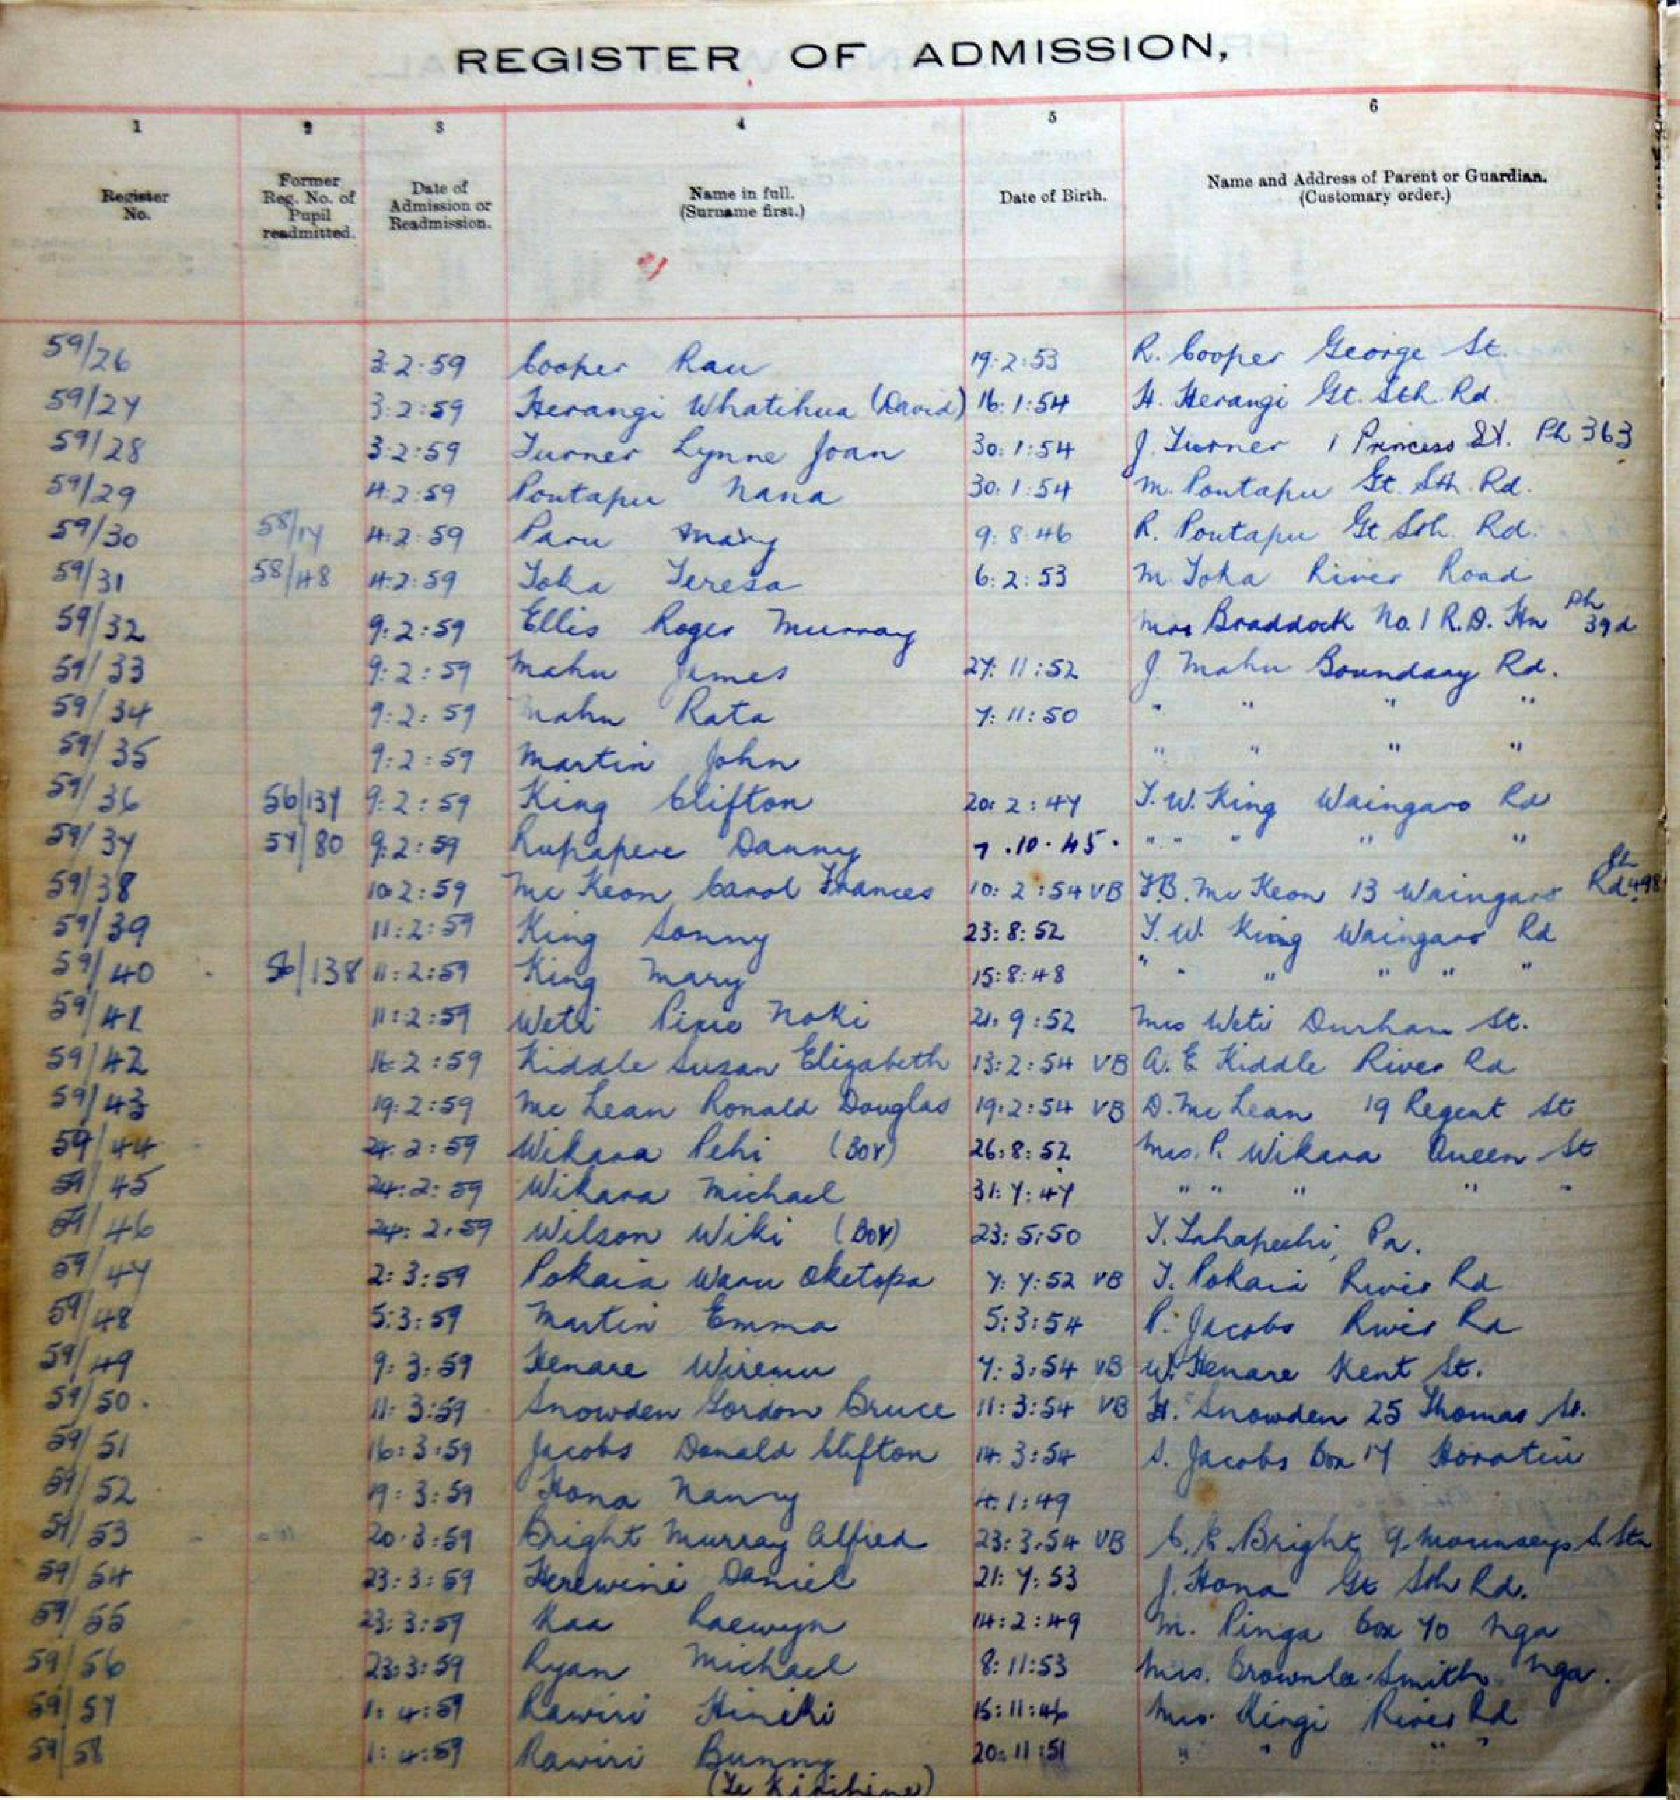 REGISTER OF ADMISSION,
1 2 3 4 5 6
Register No. Former Reg. No. of Pupil readmitted. Date of Admission or Readmission. Name in full. (Surname first.) Date of Birth. Name and Address of Parent or Guardian. (Customary order.)
59/26 3:2:59 Cooper Rau 19:2:53 R. Cooper George St.
59/27 3:2:59 Herangi Whatihua (David) 16:1:54 H. Herangi Gt. Sth. Rd.
59/28 3:2:59 Turner Lynne Joan 30:1:54 J. Turner 1 Princess St. Ph 363
59/29 4:2:59 Poutapu Nana 30:1:54 M. Poutapu Gt. Sth. Rd.
59/30 58/17 4:2:59 Paru Mary 9:8:46 R. Poutapu Gt Sth. Rd.
59/31 58/48 4:2:59 Toka Teresa 6:2:53 M. Toka River Road
59/32 9:2:59 Ellis Roger Murray Mrs Braddock No. 1 R.D. Hn Ph 39d
59/33 9:2:59 Mahu James 27:11:52 J. Mahu Boundary Rd.
59/34 9:2:59 Mahu Rata 7:11:50 " " " "
59/35 9:2:59 Martin John " " " "
59/36 56/137 9:2:59 King Clifton 20:2:47 T.W. King Waingaro Rd
59/37 57/80 9:2:59 Rupapere Danny 7.10.45. " " " " "
59/38 10:2:59 McKeon Carol Frances 10:2:54 VB F.B. McKeon 13 Waingaro Rd Ph 498
59/39 11:2:59 King Sonny 23:8:52 T.W. King Waingaro Rd
59/40 56/138 11:2:59 King Mary 15:8:48 " " " " " "
59/41 11:2:59 Weti Pixie Noki 21:9:52 Mrs Weti Durham St.
59/42 16:2:59 Kiddle Susan Elizabeth 13:2:54 VB A.E Kiddle River Rd
59/43 19:2:59 McLean Ronald Douglas 19:2:54 VB D. McLean 19 Regent St
59/44 24:2:59 Wikara Pehi (Boy) 26:8:52 Mrs. P. Wikara Queen St
59/45 24:2:59 Wikara Michael 31:7:47 " " " " "
59/46 24:2:59 Wilson Wiki (Boy) 23:5:50 T. Pa.
59/47 2:3:59 Pokaia Waru Oketopa 7:7:52 VB T. Pokaia River Rd
59/48 5:3:59 Martin Emma 5:3:54 P. Jacobs River Rd
59/49 9:3:59 Henare Wiremu 7:3:54 VB W. Henare Kent St.
59/50. 11:3:59 Snowden Gordon Bruce 11:3:54 VB H. Snowden 25 Thomas St.
59/51 16:3:59 Jacobs Donald Clifton 14:3:54 S. Jacobs Box 17 Horotiu
59/52 19:3:59 Hona Nancy 4:1:49
59/53 20:3:59 Bright Murray Alfred 23:3:54 VB C.E. Bright 9.
59/54 23:3:59 Herewini Daniel 21:7:53 J. Hona Gt Sth Rd.
59/55 23:3:59 Kaa Raewyn 14:2:49 M. Pinga Box 70 Nga
59/56 23:3:59 Ryan Michael 8:11:53 Mrs. Brownlee-Smith Nga.
59/57 1:4:59 Rawiri 15:11:46 Mrs. Kingi River Rd
59/58 1:4:59 Rawiri Bunny 20:11:51 " " " "